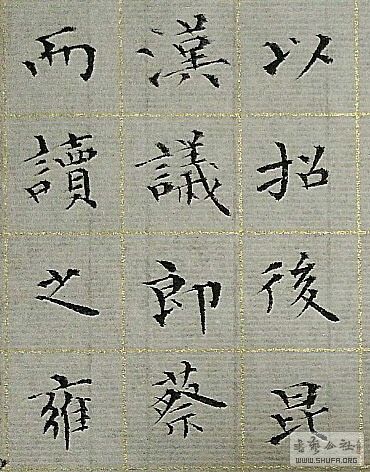 以招後昆
漢議郎蔡
而讀之雍
书艺公社
WWW.SHUFA.ORG